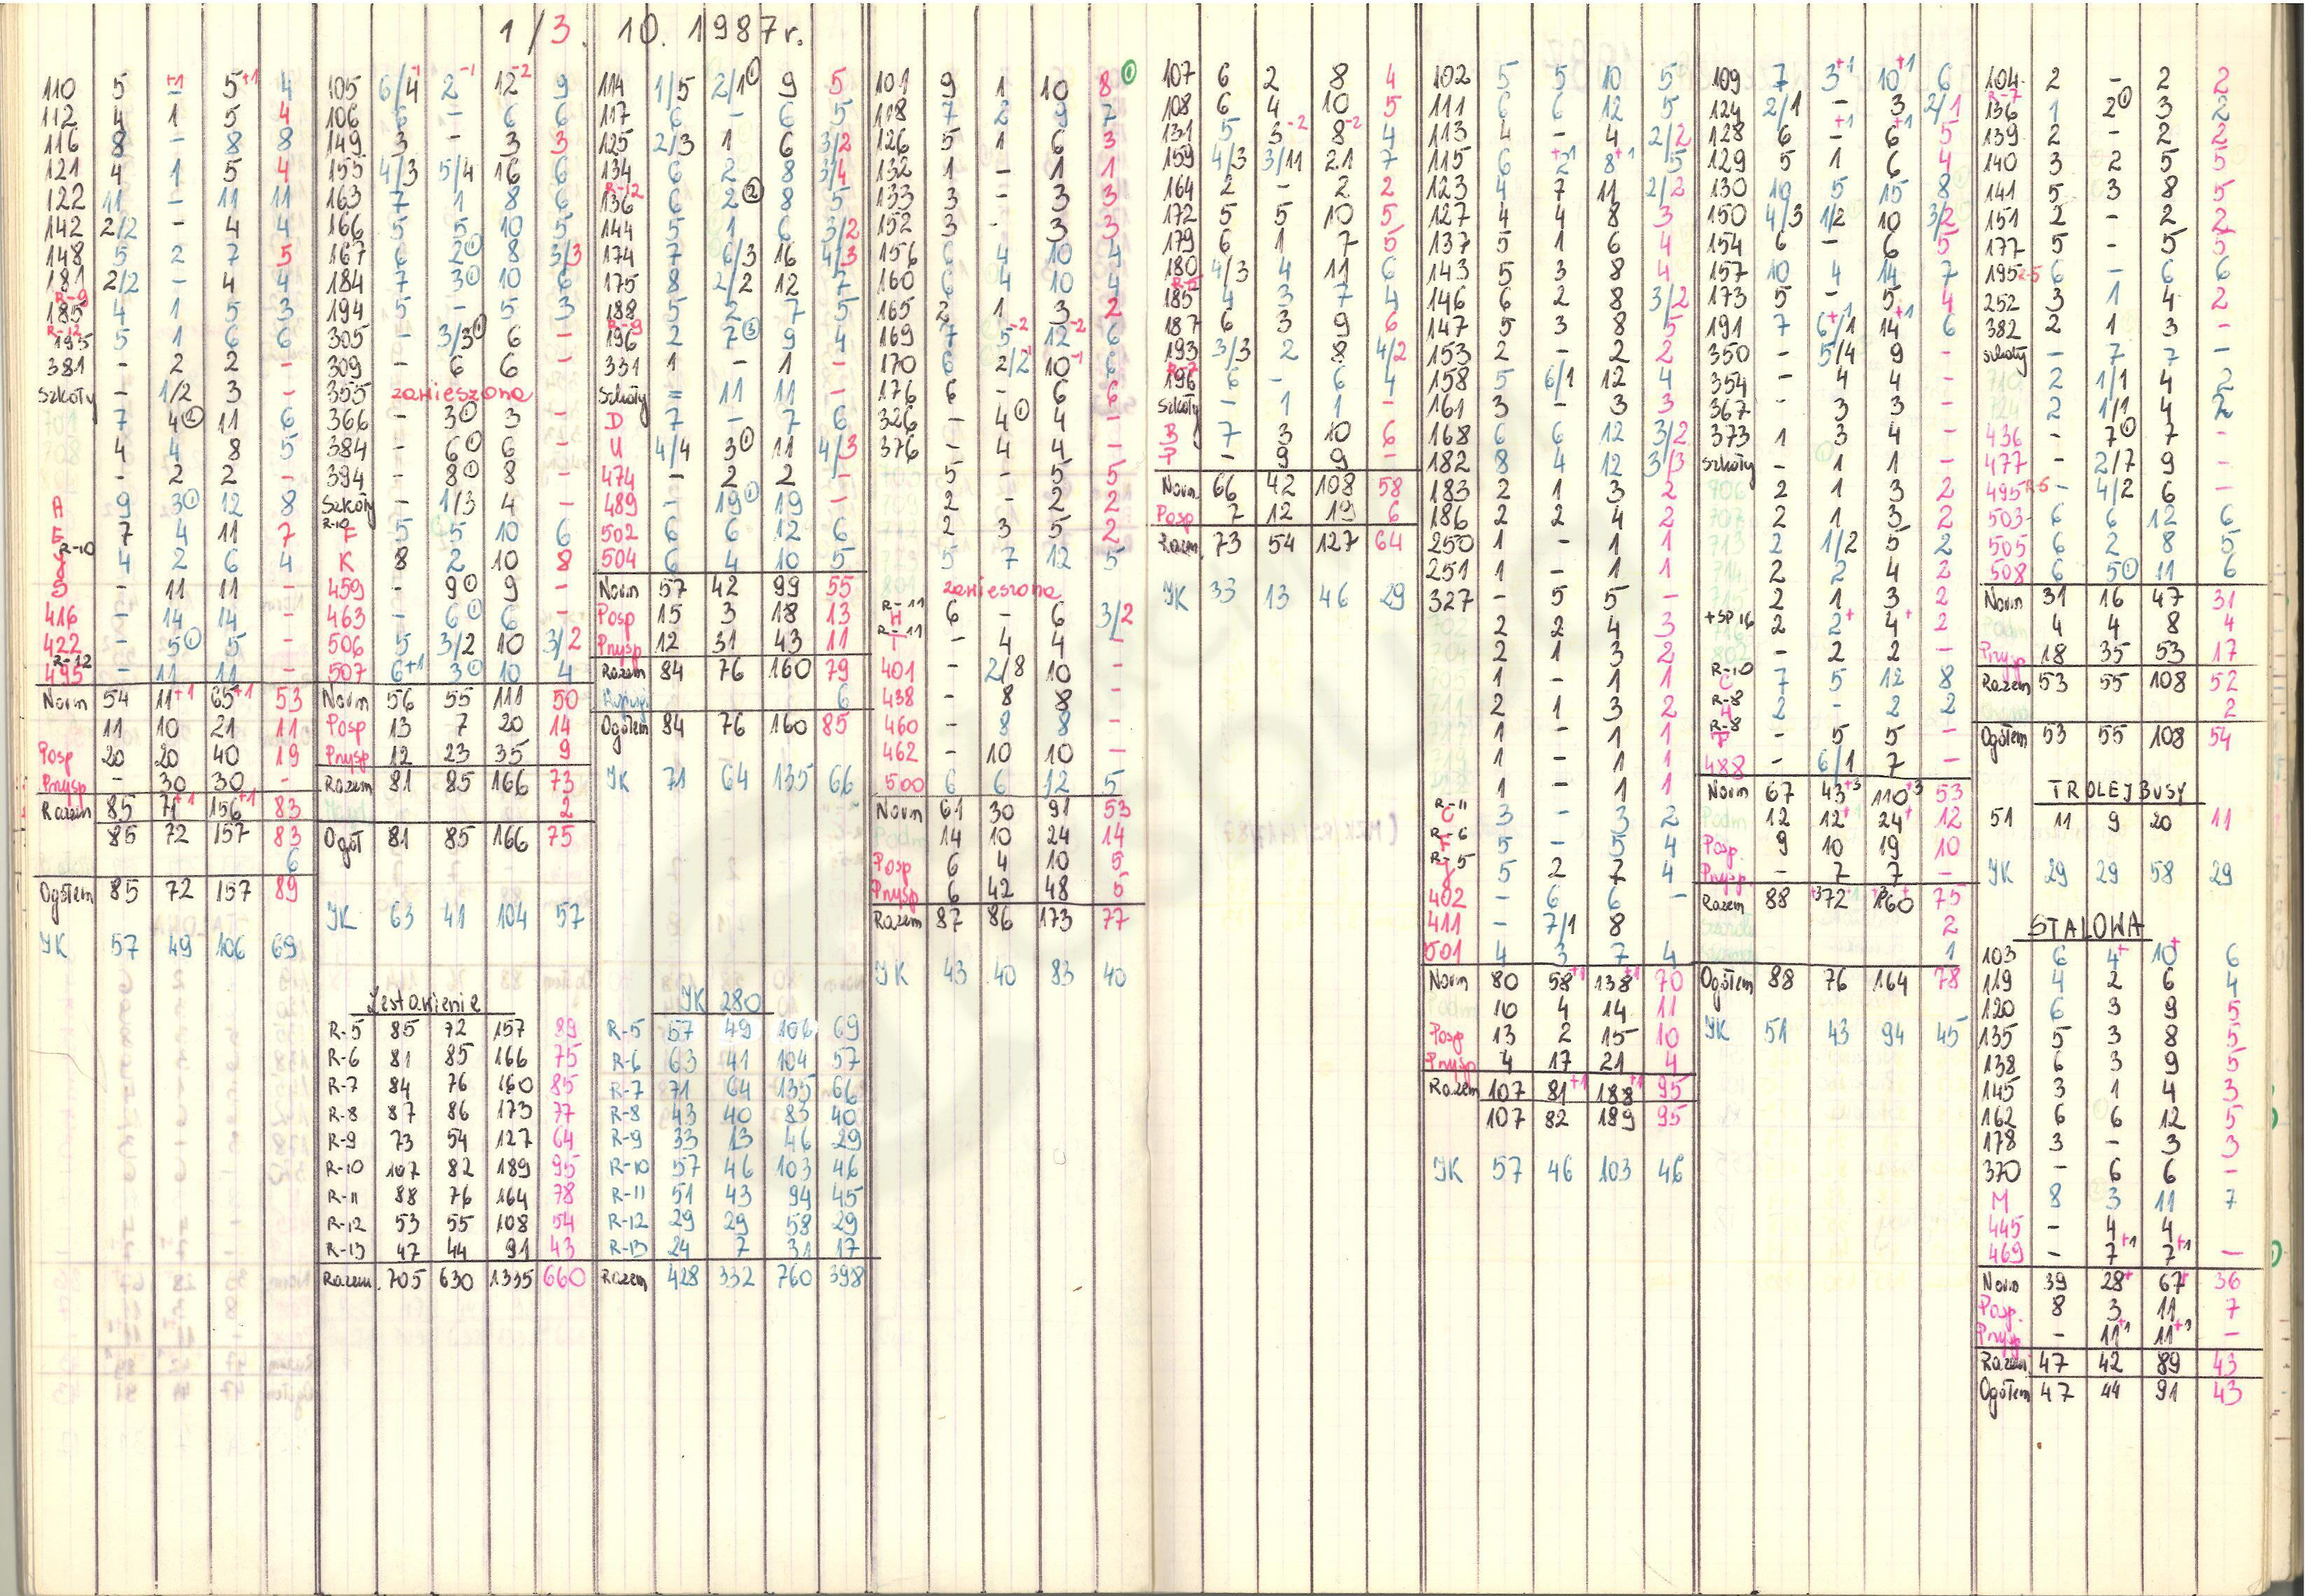 1/3. 10. 1987 r.
110 5 -+1 5+1 4
112 4 1 5 4
116 8 - 8 8
121 4 1 5 4
122 11 - 11 11
142 2/2 - 4 4
148 5 2 7 5
181 2/2 - 4 4
R-9
185 4 1 5 3
R-12
195 5 1 6 6
381 - 2 2 -
Szkoły - 1/2 3 -
7 4② 11 6
4 4 8 5
- 2 2 -
A 9 3① 12 8
E 7 4 11 7
R-10
4 2 6 4
- 11 11 -
416 - 14 14 -
422 - 5① 5 -
R-12
495 - 11 11 -
Norm 54 11+1 65+1 53
11 10 21 11
Posp 20 20 40 19
Pnysp - 30 30 -
Razem 85 71+1 156+1 83
85 72 157 83
6
Ogółem 85 72 157 89
JK 57 49 106 69
105 6/4-1 2-1 12-2 9
106 6 - 6 6
149 3 - 3 3
155 4/3 5/4 16 6
163 7 1 8 6
166 5 5 10 5
167 6 2① 8 3/3
184 7 3① 10 6
194 5 - 5 3
305 - 3/3① 6 -
309 - 6 6 -
355 zawieszona
366 - 3① 3 -
384 - 6① 6 -
394 - 8① 8 -
Szkoły - 1/3 4 -
R-10
F 5 5 10 6
K 8 2 10 8
459 - 9① 9 -
463 - 6① 6 -
506 5 3/2 10 3/2
507 6+1 3① 10 4
Norm 56 55 111 50
Posp 13 7 20 14
Pnysp 12 23 35 9
Razem 81 85 166 73
2
Ogół 81 85 166 75
JK 63 41 104 57
Zestawienie
R-5 85 72 157 89
R-6 81 85 166 75
R-7 84 76 160 85
R-8 87 86 173 77
R-9 73 54 127 64
R-10 107 82 189 95
R-11 88 76 164 78
R-12 53 55 108 54
R-13 47 44 91 43
Razem 705 630 1335 660
114 1/5 2/1① 9 5
117 6 - 6 5
125 2/3 1 6 3/2
134 6 2 8 3/4
R-12
136 6 2② 8 5
144 5 1 6 3/2
174 7 6/3 16 4/3
175 8 2/2 12 7
188 5 2 7 5
R-9
196 2 7③ 9 4
331 1 - 1 -
Szkoły = 11 11 -
D 7 - 7 6
U 4/4 3① 11 4/3
474 - 2 2 -
489 - 19① 19 -
502 6 6 12 6
504 6 4 10 5
Norm 57 42 99 55
Posp 15 3 18 13
Pnysp 12 31 43 11
Razem 84 76 160 79
6
Ogółem 84 76 160 85
JK 71 64 135 66
JK 280
R-5 57 49 106 69
R-6 63 41 104 57
R-7 71 64 135 66
R-8 43 40 83 40
R-9 33 13 46 29
R-10 57 46 103 46
R-11 51 43 94 45
R-12 29 29 58 29
R-13 24 7 31 17
Razem 428 332 760 398
101 9 1 10 8①
118 7 2 9 7
126 5 1 6 3
132 1 - 1 1
133 3 - 3 3
152 3 - 3 3
156 6 4 10 4
160 6 4 10 4
165 2 1 3 2
169 7 5-2 12-2 6
170 6 2/2-1 10-1 6
176 6 - 6 6
326 - 4① 4 -
376 - 4 4 -
5 - 5 5
2 - 2 2
2 3 5 2
5 7 12 5
801 zawieszona
R-11
H 6 - 6 3/2
R-11
T - 4 4 -
401 - 2/8 10 -
438 - 8 8 -
460 - 8 8 -
462 - 10 10 -
500 6 6 12 5
Norm 61 30 91 53
Podm 14 10 24 14
Posp 6 4 10 5
Pnysp 6 42 48 5
Razem 87 86 173 77
JK 43 40 83 40
107 6 2 8 4
108 6 4 10 5
131 5 3-2 8-2 4
159 4/3 3/11 21 7
164 2 - 2 2
172 5 5 10 5
179 6 1 7 5
180 4/3 4 11 6
R-5
185 4 3 7 4
187 6 3 9 6
193 3/3 2 8 4/2
R-7
196 6 - 6 4
Szkoły - 1 1 -
B 7 3 10 6
P - 9 9 -
Norm 66 42 108 58
Posp 7 12 19 6
Razem 73 54 127 64
JK 33 13 46 29
102 5 5 10 5
111 6 6 12 5
113 4 - 4 2/2
115 6 2+1 8+1 5
123 4 7 11 2/2
127 4 4 8 3
137 5 1 6 4
143 5 3 8 4
146 6 2 8 3/2
147 5 3 8 5
153 2 - 2 2
158 5 6/1 12 4
161 3 - 3 3
168 6 6 12 3/2
182 8 4 12 3/3
183 2 1 3 2
186 2 2 4 2
250 1 - 1 1
251 1 - 1 1
327 - 5 5 -
702 2 2 4 3
704 2 1 3 2
705 1 - 1 1
711 2 1 3 2
1 - 1 1
1 - 1 1
1 - 1 1
R-11
C 3 - 3 2
R-6
F 5 - 5 4
R-5
5 2 7 4
402 - 6 6 -
411 - 7/1 8
501 4 3 7 4
Norm 80 58+1 138+1 70
Podm 10 4 14 11
Posp 13 2 15 10
Pnysp 4 17 21 4
Razem 107 81+1 188+1 95
107 82 189 95
JK 57 46 103 46
109 7 3+1 10+1 6
124 2/1 - 3 2/1
128 6 -+1 6+1 5
129 5 1 6 4
130 10 5 15 8
150 4/3 1/2 10 3/2
154 6 - 6 5
157 10 4 14 7
173 5 - 5 4
191 7 6+/1 14+1 6
350 - 5/4 9 -
354 - 4 4 -
367 - 3 3 -
373 1 3 4 -
Szkoły - 1 1 -
706 2 1 3 2
707 2 1 3 2
713 2 1/2 5 2
714 2 2 4 2
2 1 3 2
+SP 16 2 2+ 4+ 2
802 - 2 2 -
R-10
C 7 5 12 8
R-8
H 2 - 2 2
R-8
T - 5 5 -
488 - 6/1 7 -
Norm 67 43+3 110+3 53
Podm 12 12+ 24+ 12
Posp. 9 10 19 10
Pnysp - 7 7 -
Razem 88 +372 160 75
2
1
Ogółem 88 76 164 78
JK 51 43 94 45
104 2 - 2 2
R-7
136 1 2① 3 2
139 2 - 2 2
140 3 2 5 5
141 5 3 8 5
151 2 - 2 2
177 5 - 5 5
195 R-5 6 - 6 6
252 3 1 4 2
382 2 1 3 -
Szkoły - 7 7 -
710 2 1/1 4 2
724 2 1/1 4 2
436 - 7① 7 -
477 - 2/7 9 -
495 R-5 - 4/2 6 -
503 6 6 12 6
505 6 2 8 5
508 6 5① 11 6
Norm 31 16 47 31
Podm 4 4 8 4
Pnysp 18 35 53 17
Razem 53 55 108 52
2
Ogółem 53 55 108 54
TROLEJBUSY
51 11 9 20 11
JK 29 29 58 29
STALOWA
103 6 4+ 10+ 6
119 4 2 6 4
120 6 3 9 5
135 5 3 8 5
138 6 3 9 5
145 3 1 4 3
162 6 6 12 5
178 3 - 3 3
370 - 6 6 -
M 8 3 11 7
445 - 4 4
469 - 7+1 7+1 -
Norm 39 28+ 67+ 36
Posp. 8 3 11 7
Pnysp - 11+1 11+1 -
Razem 47 42 89 43
Ogółem 47 44 91 43